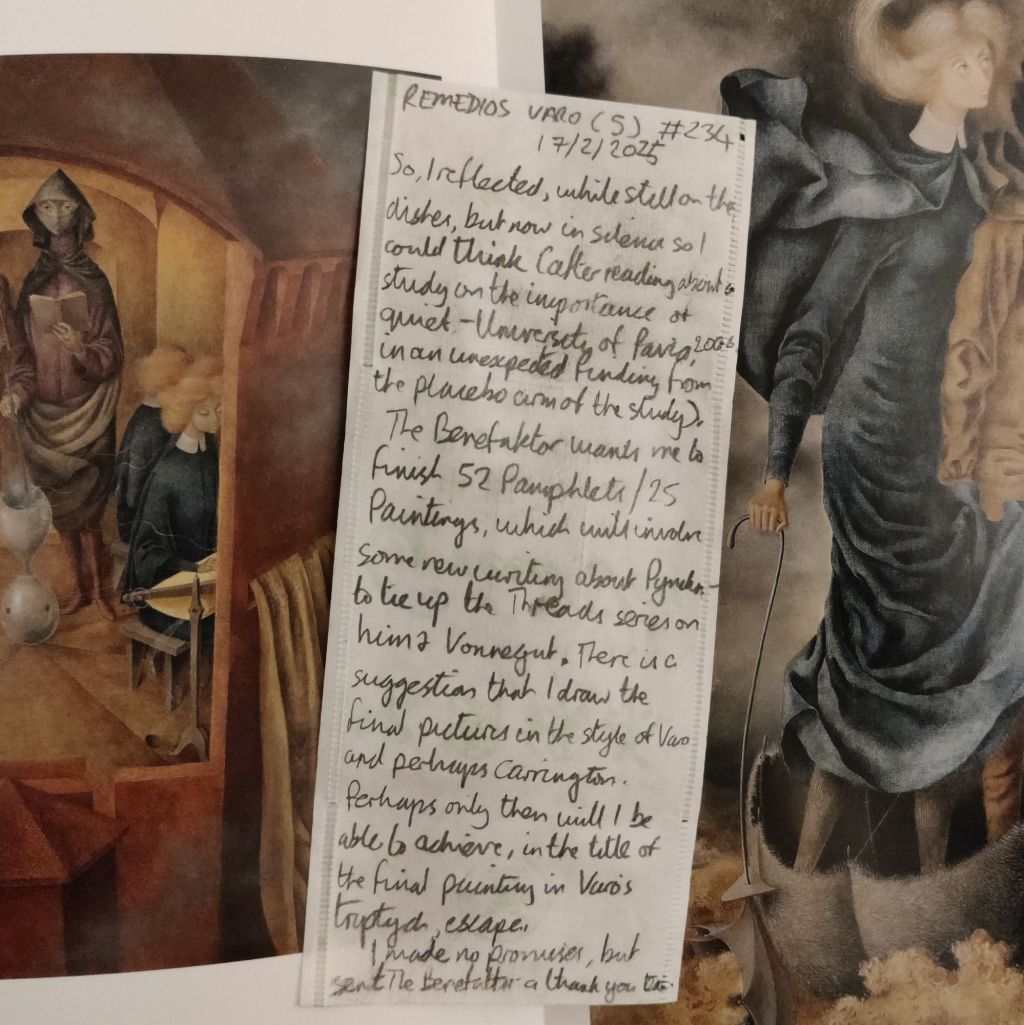 REMEDIOS VARO (5) #234
17/2/2025
So, I reflected, while still on the
dishes, but now in silence so I
could think (after reading about a
study on the importance of
quiet - University of Pavia,
in an unexpected finding from
the placebo arm of the study).
The Benefaktor wants me to
finish 52 Pamphlets/25
Paintings, which will involve
some new writing about Pynchon -
to tie up the Threads series on
him & Vonnegut. There is a
suggestion that I draw the
final pictures in the style of Varo
and perhaps Carrington.
Perhaps only then will I be
able to achieve, in the title of
the final painting in Varo's
tryptych, escape.
I made no promises, but
sent The Benefaktor a thank you